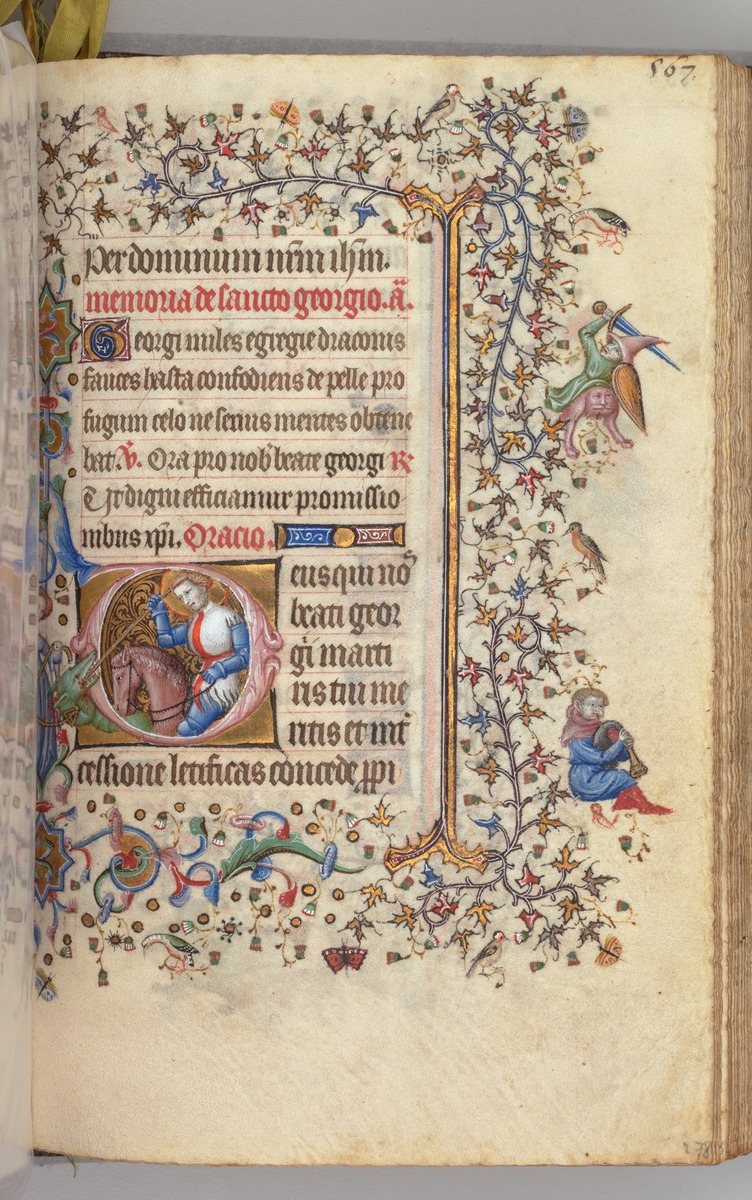 567.
Per dominum nr̄m ih̄m.
memoria de sancto georgio. a͞.
Georgi miles egregie draconis
fauces hasta confodiens de pelle pro
fugum celo ne serius mentes obtine
bat. V̄. Ora pro nob̄ beate georgi R̄
Ut digni efficiamur promissio
nibus xp̄i. Oracio.
Deus qui nos
beati geor
gii marti
ris tui me
ritis et int̄
cessione letificas concede pp̄i
278